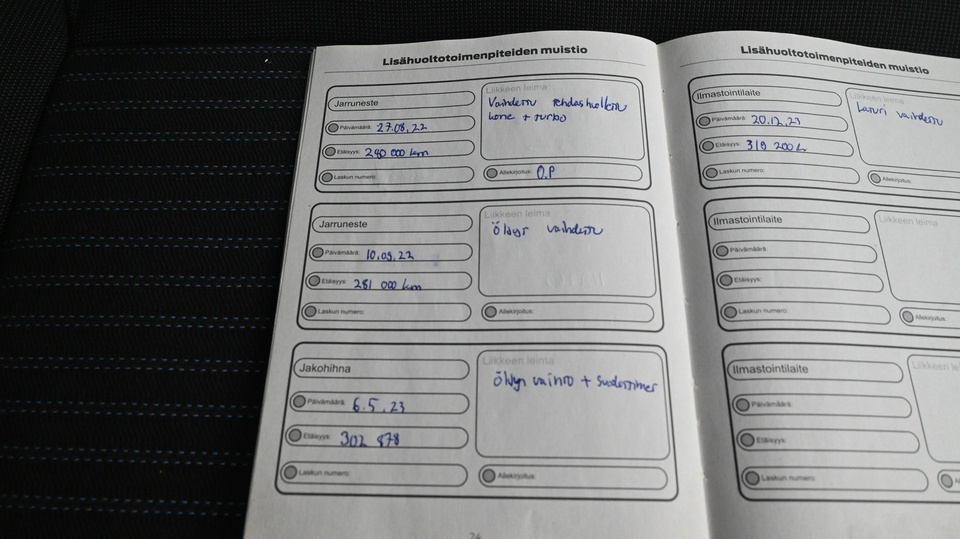 Lisähuoltotoimenpiteiden muistio
Jarruneste
Päivämäärä: 27.08.22
Etäisyys: 280 000 km
Laskun numero:
Liikkeen leima
Vaihdettu tehdashuollettu
kone + turbo
Allekirjoitus: O.P
Jarruneste
Päivämäärä: 10.09.22
Etäisyys: 281 000 km
Laskun numero:
Liikkeen leima
Öljyt vaihdettu
Allekirjoitus:
Jakohihna
Päivämäärä: 6.5.23
Etäisyys: 302 878
Laskun numero:
Liikkeen leima
Öljyn vaihto +
Allekirjoitus:
24
Lisähuoltotoimenpiteiden muistio
Ilmastointilaite
Päivämäärä: 20.12.23
Etäisyys: 319 200
Laskun numero:
Liikkeen leima
Laturi vaihdettu
Allekirjoitus:
Ilmastointilaite
Päivämäärä:
Etäisyys:
Laskun numero:
Liikkeen leima
Allekirjoitus:
Ilmastointilaite
Päivämäärä:
Etäisyys:
Laskun numero:
Liikkeen le
A